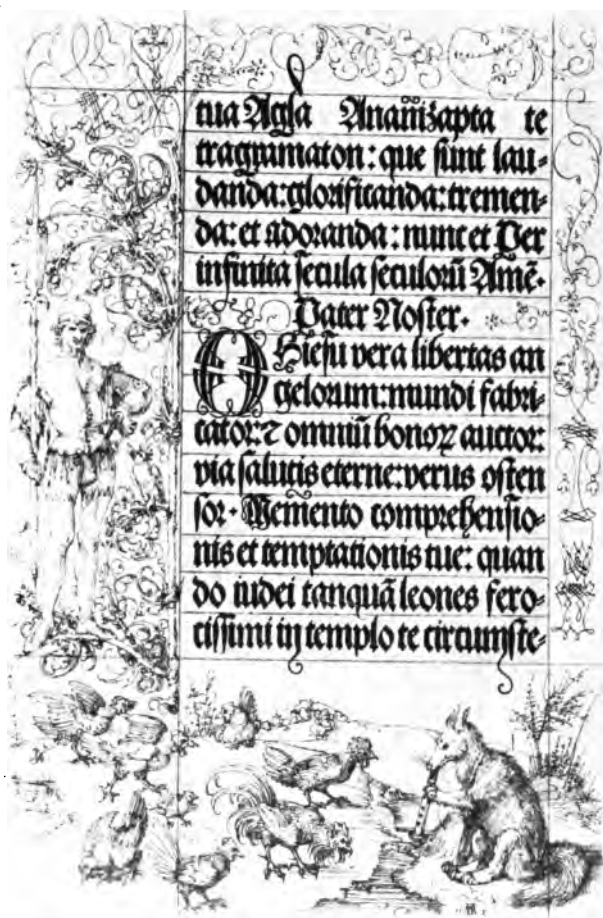 tua Agla Anam̄zapta te
tragramaton : que sunt lau⸗
danda: glorificanda: tremen⸗
da: et adoranda : nunc et Per
infinita secula seculorū Amē.
Pater Noster.
O Hiesu vera libertas an
gelorum: mundi fabri⸗
cator: ⁊ omniū bonoꝝ auctor:
via salutis eterne: verus osten
sor. Memento comprehensio⸗
nis et temptationis tue: quan
do iudei tanquā leones fero⸗
cissimi in templo te circumste⸗